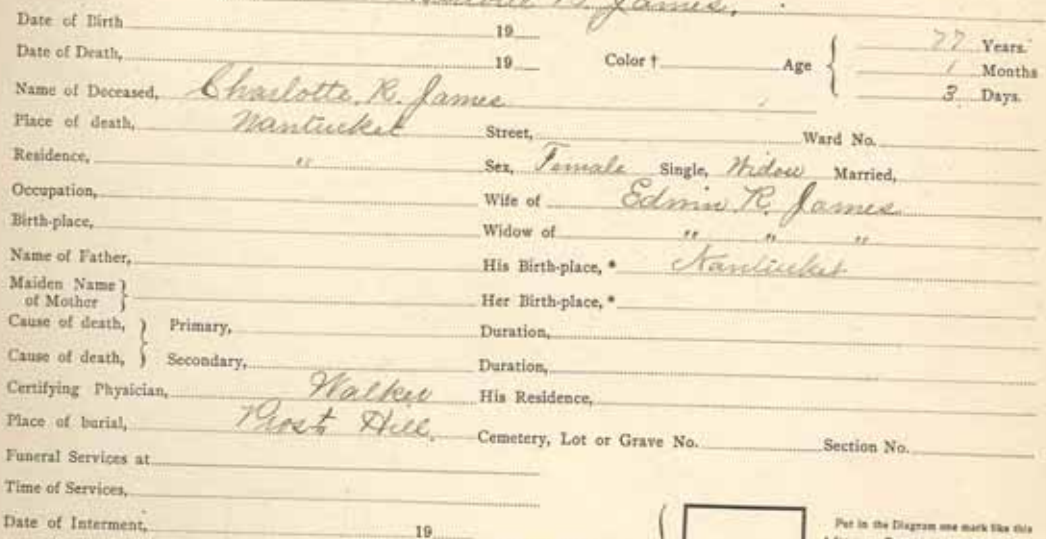 R. James,
Date of Birth 19
Date of Death, 19 Color † Age { 77 Years.
1 Months
3 Days.
Name of Deceased, Charlotte. R. James
Place of death, Nantucket Street, Ward No.
Residence, " Sex, Female Single, Widow Married,
Occupation, Wife of Edwin R. James
Birth-place, Widow of " " "
Name of Father, His Birth-place, * Nantucket
Maiden Name of Mother } Her Birth-place, *
Cause of death, } Primary, Duration,
Cause of death, } Secondary, Duration,
Certifying Physician, Walker His Residence,
Place of burial, Prost Hill. Cemetery, Lot or Grave No. Section No.
Funeral Services at
Time of Services,
Date of Interment, 19
Put in the Diagram one mark like this